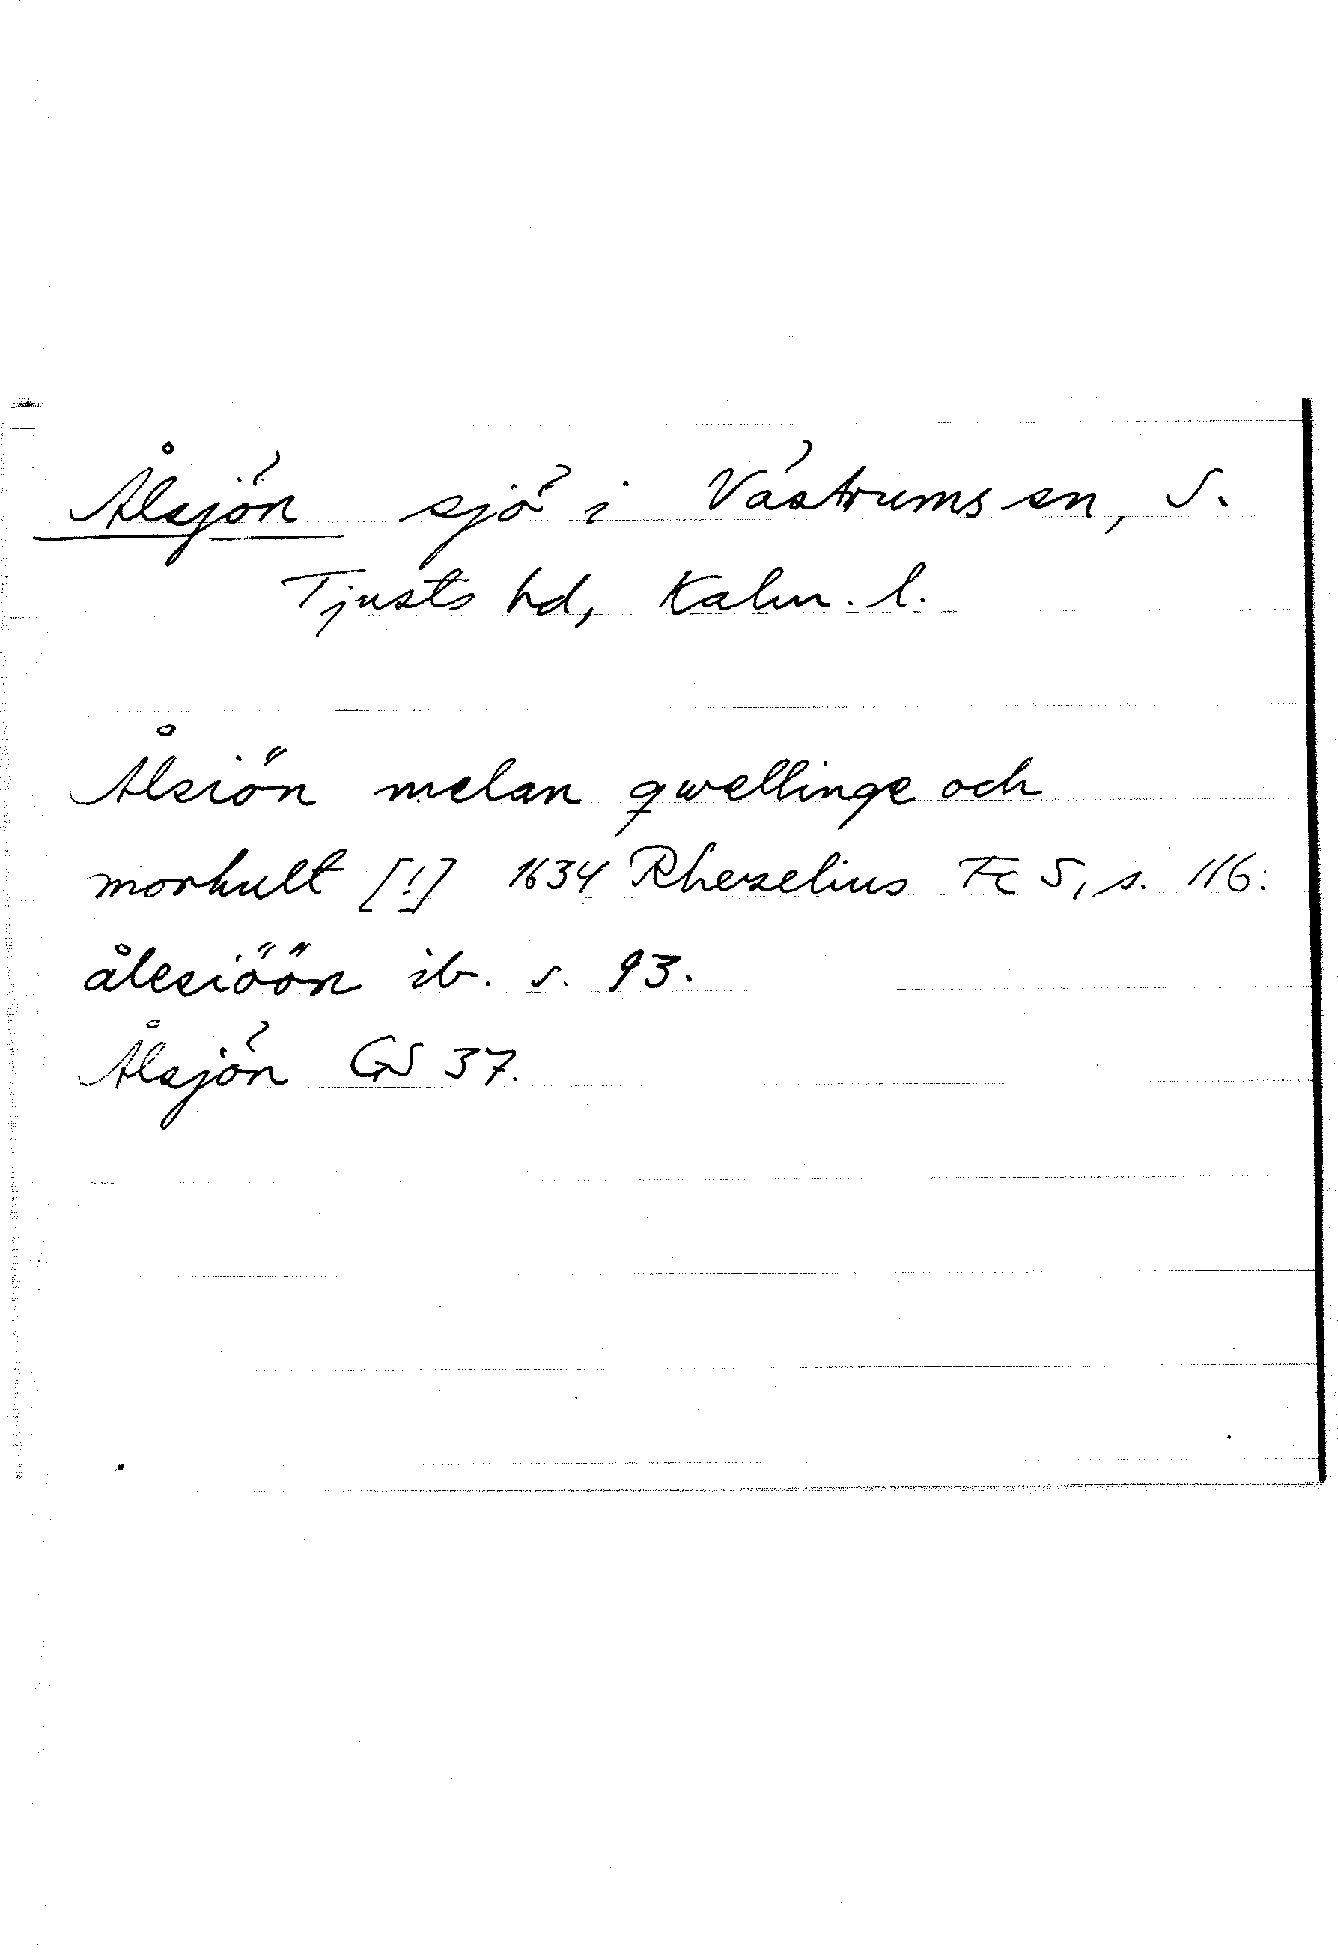 Ålsjön sjö i Västrums sn, S.
Tjusts hd, Kalm. l.
Ålsiön melan qwellinge och
morhult [!] 1634 Rhezelius Fc 5, s. 116.
ålesiöön ib. s. 93.
Ålsjön GS 37.